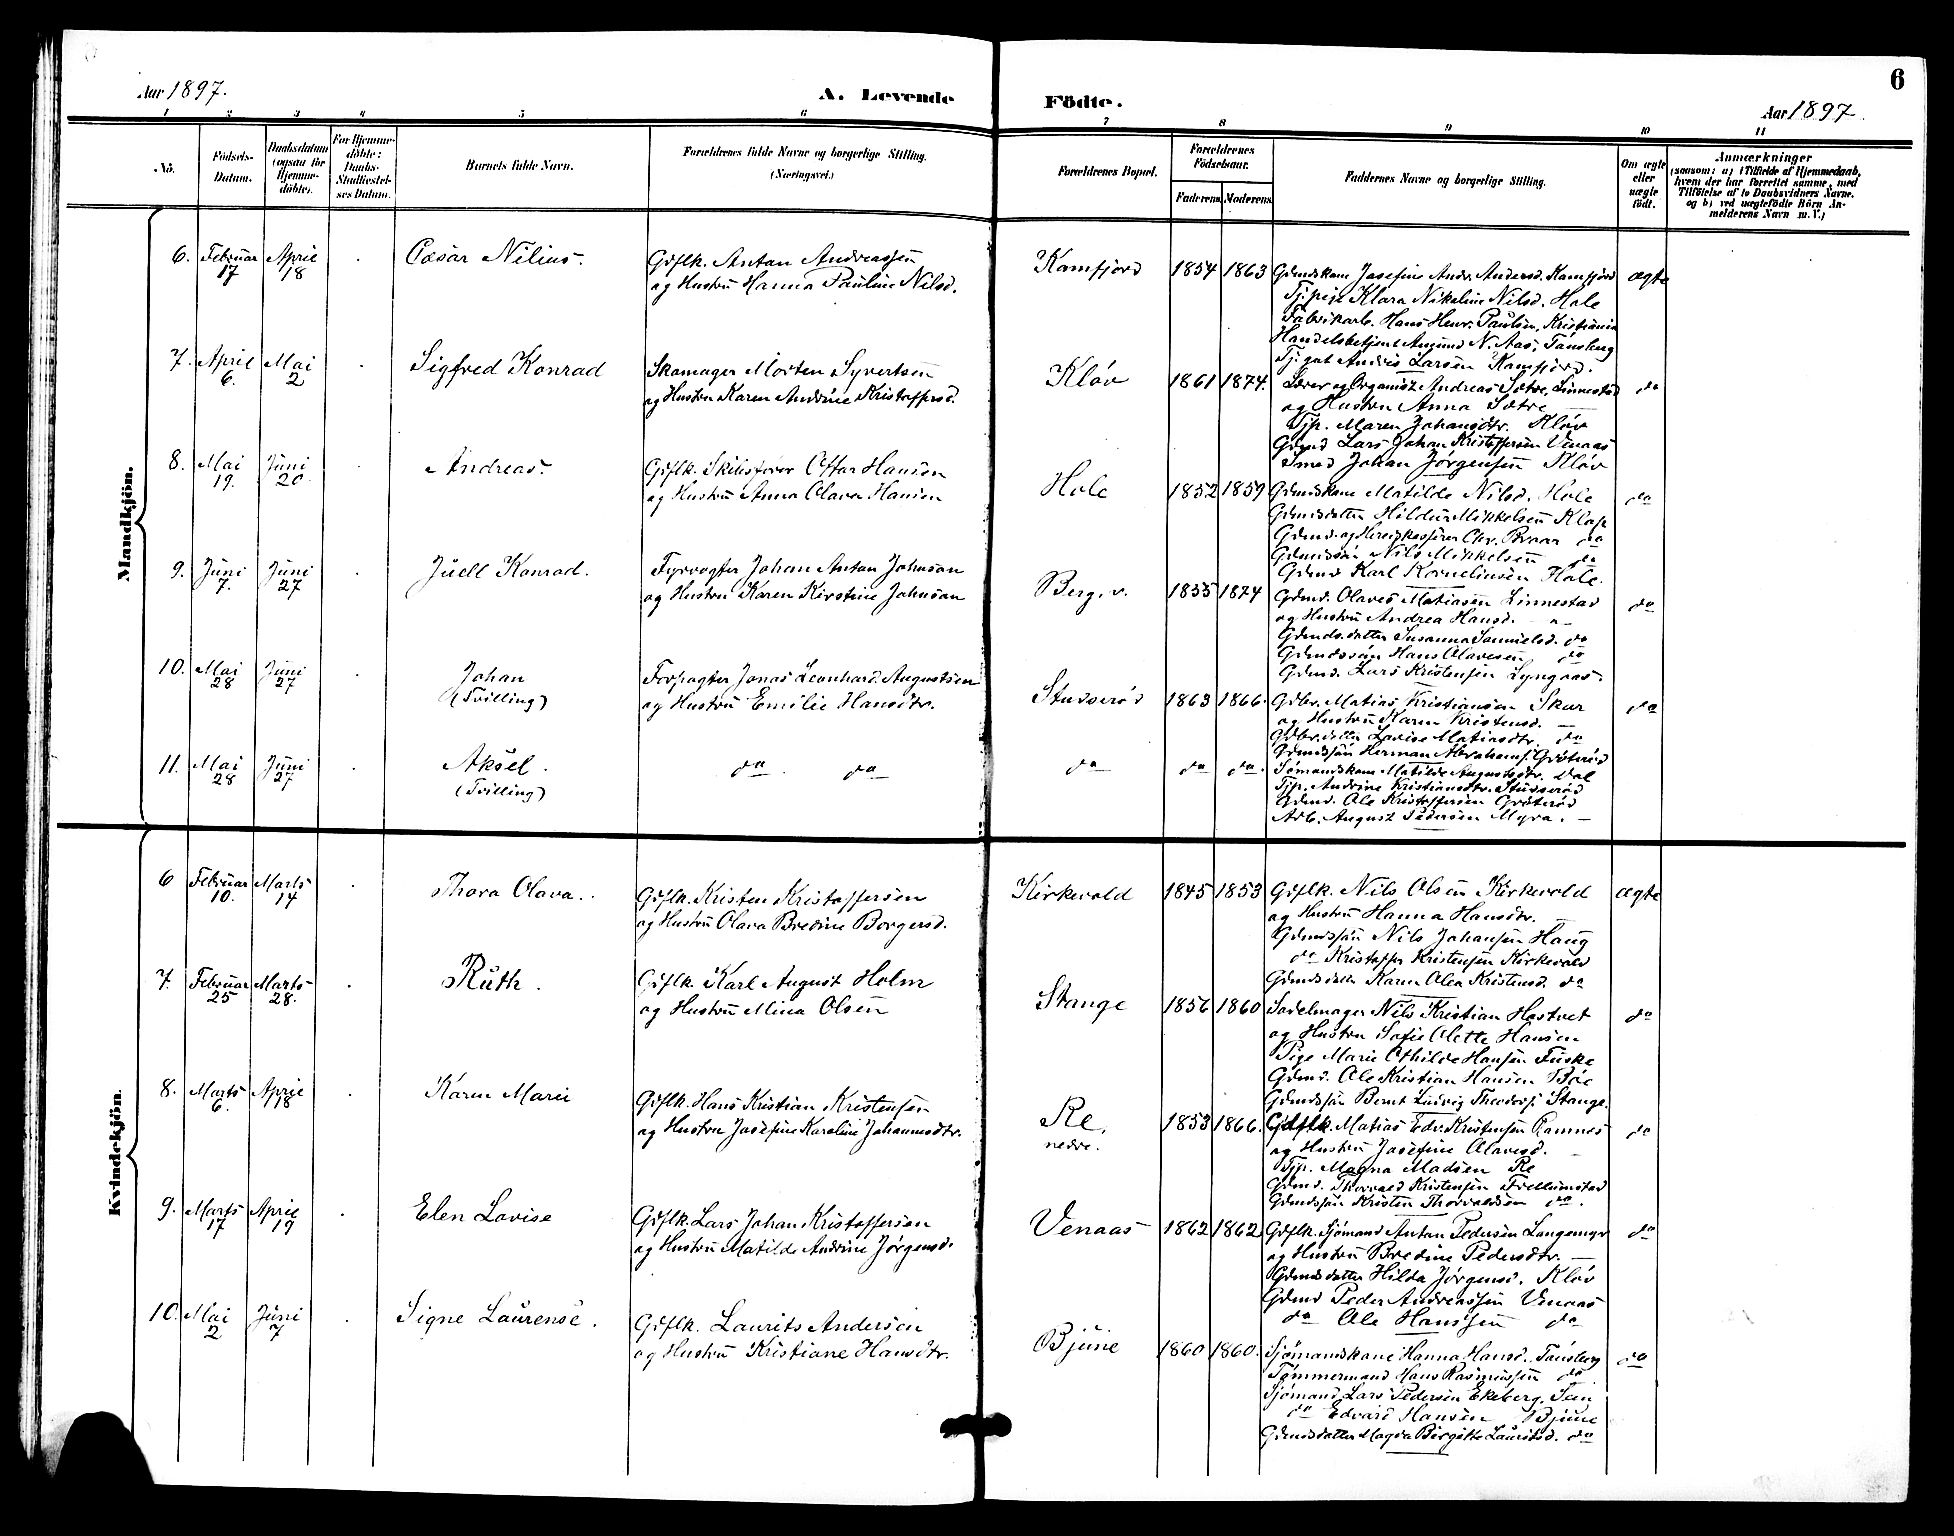 Aar 1897.
A. Levende
Födte.
Aar 1897.
6
1 2 3 4 5 6 7 8 9 10 11
No.
Födsels-Datum.
Daabsdatum (ogsaa for Hjemme-døbte).
For Hjemme-døbte: Daabs-Stadfæstel-ses Datum.
Barnets fulde Navn.
Forældrenes fulde Navne og borgerlige Stilling. (Næringsvei.)
Forældrenes Bopæl.
Forældrenes Födselsaar.
Faderens. Moderens.
Faddernes Navne og borgerlige Stilling.
Om ægte eller uægte födt.
Anmærkninger
(saasom: a) i Tilfælde af Hjemmedaab, hvem der har forrettet samme, med Tilföielse af to Daabsvidners Navne, og b) ved uægtefödte Börn An-melderens Navn m. V.)
Mandkjön.
6. Februar 17 April 18 Cæsar Nilius.
Gdflk. Antan Andreassen
og Hustru Hanna Pauline Nilsd.
Ramfjord 1854 1863
Gdmdskone Josefine Andr. Andersd. Kamfjord ægte
Tj.pige Klara Nikoline Nilsd. Hole
Fabrikarb. Hans Henr. Paulsen, Kristiania
Handelsbetjent Amund N. Aas, Tønsberg
Tj.gut Andreas Larsen Kamfjord.
7. April 6. Mai 2 Sigfred Konrad
Skomager Morten Syvertsen
og Hustru Karen Andrine Kristoffersd.
Kløv 1861 1874.
Lærer og Organist Andreas Sætre, Linnestad do
og Hustru Anna Sætre —
Tjp. Maren Johansdtr. Kløv
Gdmd Lars Johan Kristoffersen Venaas
Smed Johan Jørgensen Kløv
8. Mai 19. Juni 20. Andreas.
Gdflk. Skibsfører Ottar Hansen
og Hustru Anna Olava Hansen
Hole 1852 1859
Gdmdskone Matilde Nilsd. Hole do
Gdmdsdatter Hildur Mikkelsen Klop
Gdmd. og Herredskasserer Chr. Braar do
Gdmdssøn Nils Mikkelsen do
Gdmd Karl Korneliusen Hole.
9. Juni 7. Juni 27 Juell Konrad.
Fyrvogter Johan Antan Johnsan
og Hustru Karen Kirstine Johnsan
Berg, v. 1855 1874
Gdmd. Olaves Matiasen Linnestad do
og Hustru Andrea Hansd. —
Gdmds.datter Susanna Samuelsd. do
Gdmdssøn Hans Olavesen do
Gdmd. Lars Kristensen Lyngaas.
10. Mai 28 Juni 27 Johan
(Tvilling)
Forpagter Jonas Leonhard Augustsen
og Hustru Emilie Hansdtr.
Studserød 1863 1866.
Gdbr. Matias Kristiansen Skar do
og Hustru Karen Kristensd. —
Gdbr.datter Lovise Matiasdtr. do
Gdmdssøn Herman Abrahams. Grøterød
11. Mai 28 Juni 27 Aksel.
(Tvilling)
do do do do do.
Sømandskone Matilde Augustsdtr. Dal
Tjp. Andrine Kristiansdtr. Studserød
Gdmd. Ole Kristoffersen Grøterød
Arb. August Pedersen Myra. —
Kvindekjön.
6 Februar 10. Marts 14 Thora Olava.
Gdflk. Kristen Kristoffersen
og Hustru Olava Bredine Borgersd.
Kirkevold 1845 1853
Gdflk. Nils Olsen Kirkevold ægte
og Hustru Hanna Hansdtr. —
Gdmdssøn Nils Johansen Haug
do Kristoffer Kristensen Kirkevold
Gdmdsdatt. Karen Olea Kristensd. do
7. Februar 25 Marts 28. Ruth.
Gdflk. Karl August Holm
og Hustru Mina Olsen
Stange 1856 1860
Sadelmager Nils Kristian Hostvet do
og Hustru Sofie Olette Hansen
Pige Marie Othilde Hansen Fuske
Gdmd. Ole Kristian Hansen Bøe
Gdmdssøn Bernt Ludvig Theodors. Stange.
8. Marts 6. April 18 Karen Marie
Gdflk. Hans Kristian Kristensen
og Hustru Josefine Karoline Johannesdtr.
Re, nedre. 1853 1866.
Gdflk. Matias Edv. Kristensen Ramnes do
og Hustru Josefine Olavesd. —
Tjp. Magna Madsen Re
Gdmd. Thorvald Kristensen Frellumstad
Gdmdssøn Kristen Thorvaldsen do.
9. Marts 17 April 19 Elen Lovise
Gdflk. Lars Johan Kristoffersen
og Hustru Matilde Andrine Jørgensd.
Venaas 1862 1862
Gdflk. Sjømand Antan Pedersen Langemyr do
og Hustru Bredine Pedersdtr. —
Gdmdsdatter Hilda Jørgensd. Kløv
Gdmd Peder Andreassen Venaas
do Ole Hanssen do
10. Mai 2 Juni 7 Signe Laurense.
Gdflk. Laurits Andersen
og Hustru Kristiane Hansdtr.
Bjune 1860 1860.
Sjømandskone Hanna Hansd. Tønsberg do
Tømmermand Hans Rasmussen do.
Sjømand Lars Pedersen Ekeberg, Sem
do Edvard Hansen Bjune
Gdmdsdatter Magda Birgitte Lauritsd. do